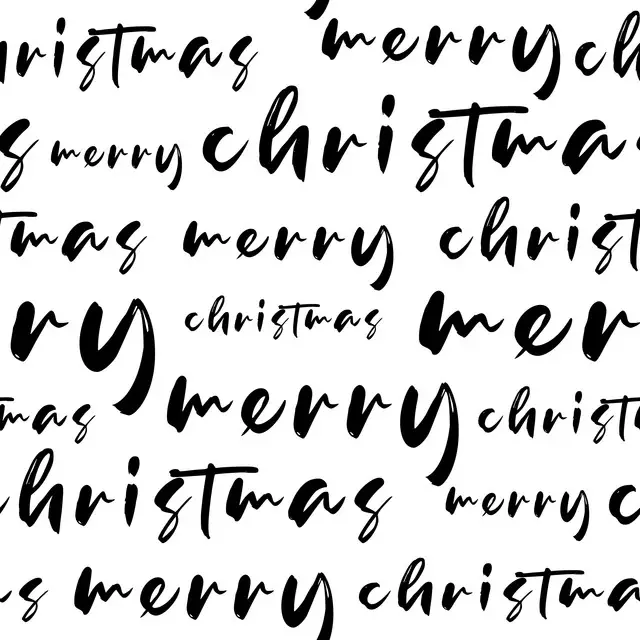 hristmas merry ch
s merry christmas
tmas merry christ
ry christmas mer
mas merry christ
christmas merry c
as merry christma